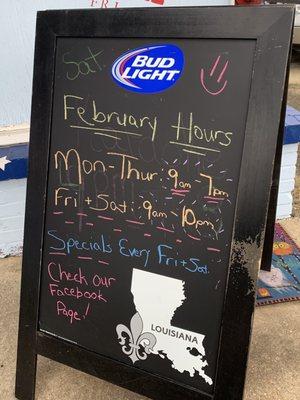 Sat.
BUD
LIGHT
February Hours
Mon-Thur: 9am 7pm
Fri+Sat: 9am-10pm
Specials Every Fri+Sat
Check Our
Facebook
Page!
LOUISIANA